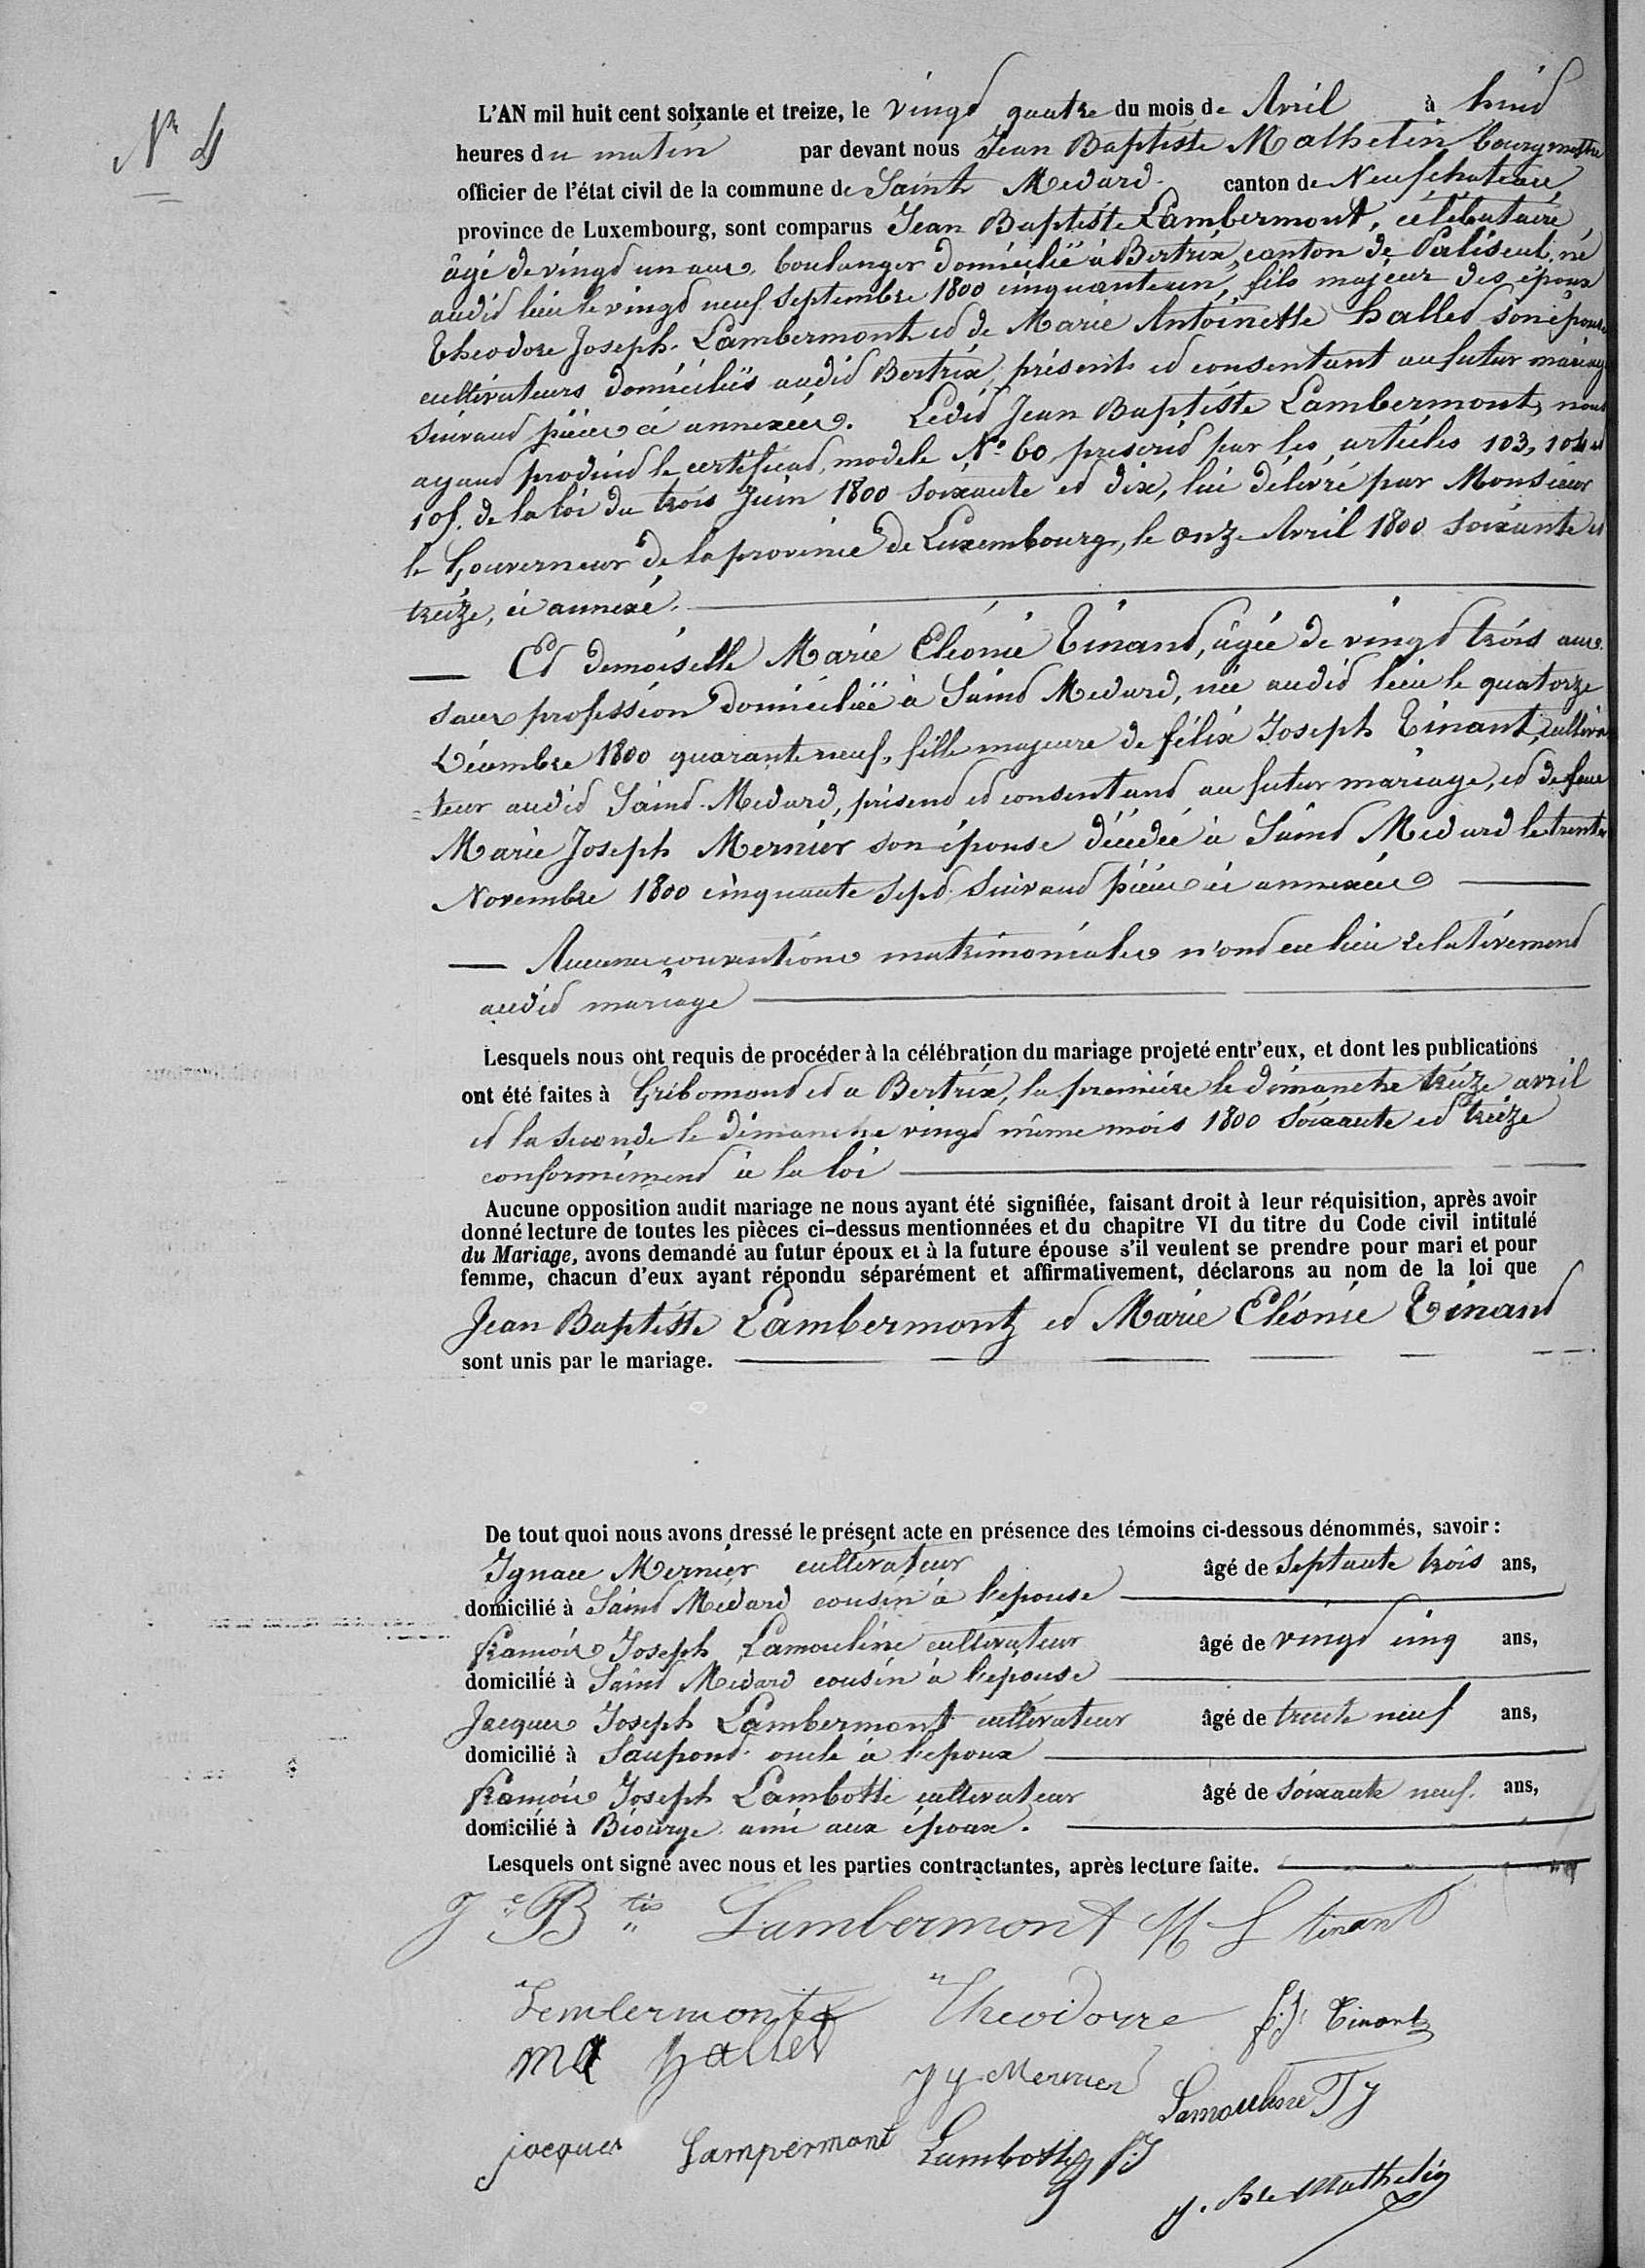 N° 4
L'AN mil huit cent soixante et treize, le vingt quatre du mois de Avril à huit
heures du matin par devant nous Jean Baptiste Mathelin bourgmestre
officier de l'état civil de la commune de Saint Medard canton de Neufchateau
province de Luxembourg, sont comparus Jean Baptiste Lambermont, célibataire,
âgé de vingt un ans, boulanger domicilié à Bertrix, canton de Paliseul, né
audit lieu le vingt neuf Septembre 1800 cinquante un, fils majeur des époux
Theodore Joseph Lambermont et de Marie Antoinette hallet son épouse
cultivateurs domiciliés audit Bertrix, présents et consentant au futur mariage
suivant pièces ci annexées. Ledit Jean Baptiste Lambermont nous
ayant produit le certificat, modele N° 60 prescrit par les articles 103, 104 et
105. de la loi du trois Juin 1800 soixante et dix, lui délivré par Monsieur
le Gouverneur de la province de Luxembourg, le onze Avril 1800 soixante et
treize, ci annexé.
Et demoiselle Marie Eléonie Tinant, âgée de vingt trois ans
sans profession domiciliée à Saint Medard, née audit lieu le quatorze
Décembre 1800 quarante neuf, fille majeure de félix Joseph Tinant, cultiva
=teur audit Saint Medard, présent et consentant au futur mariage, et de feue
Marie Joseph Mernier son épouse décédée à Saint Medard le trente
Novembre 1800 cinquante sept suivant pièces ci annexées
Aucunes conventions matrimoniales n'ont eu lieu relativement
audit mariage
Lesquels nous ont requis de procéder à la célébration du mariage projeté entr'eux, et dont les publications
ont été faites à Gribomont et a Bertrix, la première le dimanche treize avril
et la seconde le dimanche vingt même mois 1800 soixante et treize
conformément à la loi
Aucune opposition audit mariage ne nous ayant été signifiée, faisant droit à leur réquisition, après avoir
donné lecture de toutes les pièces ci-dessus mentionnées et du chapitre VI du titre du Code civil intitulé
du Mariage, avons demandé au futur époux et à la future épouse s'il veulent se prendre pour mari et pour
femme, chacun d'eux ayant répondu séparément et affirmativement, déclarons au nom de la loi que
Jean Baptiste Lambermont et Marie Eléonie Tinant
sont unis par le mariage.
De tout quoi nous avons dressé le présent acte en présence des témoins ci-dessous dénommés, savoir :
Ignace Mernier cultivateur âgé de septante trois ans,
domicilié à Saint Médard cousin à l'epouse
francois Joseph Lamouline cultivateur âgé de vingt cinq ans,
domicilié à Saint Medard cousin à l'épouse
Jacques Joseph Lambermont cultivateur âgé de trente neuf ans,
domicilié à Saupont oncle à l'epoux
francois Joseph Lambotte cultivateur âgé de soixante neuf. ans,
domicilié à Biourge ami aux époux.
Lesquels ont signé avec nous et les parties contractantes, après lecture faite.
J Bte Lambermont M L tinant
Lemlermont Theodorre f.j. Tinant
ma hallet J J Mernier Lamouline F J
jacques Lampermont Lambotte f.J
J. Bte Mathelin